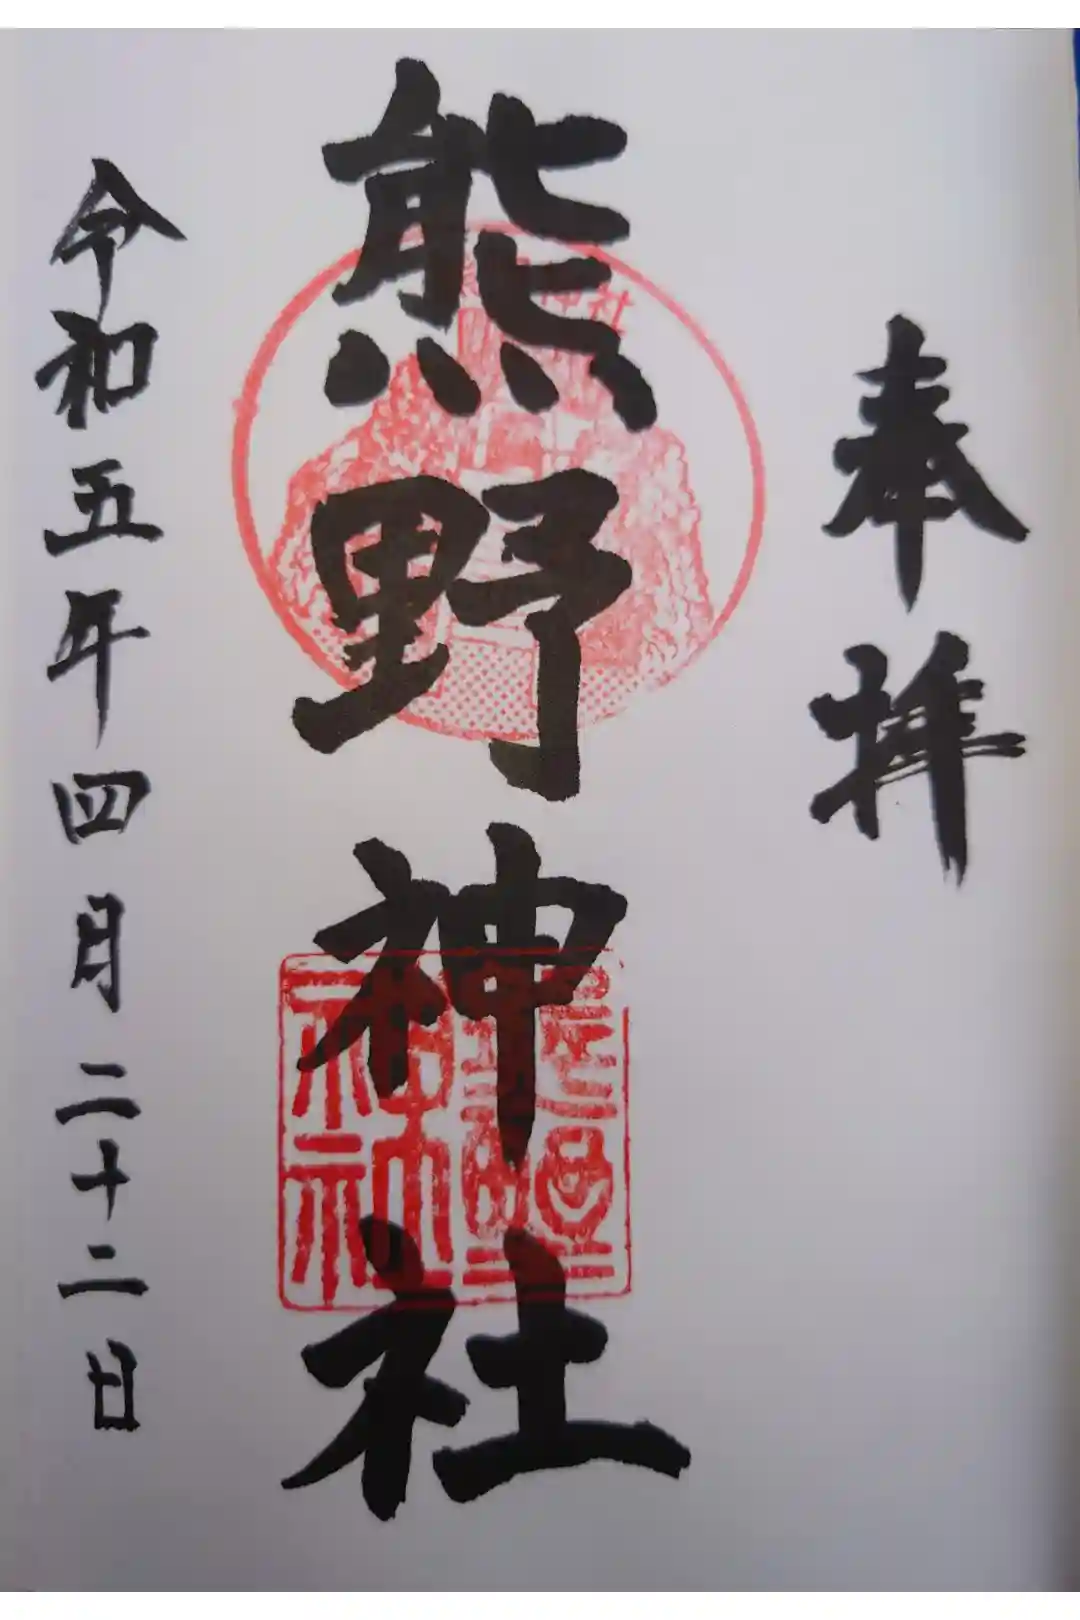 奉拝
熊野神社
神社
令和五年四月二十二日